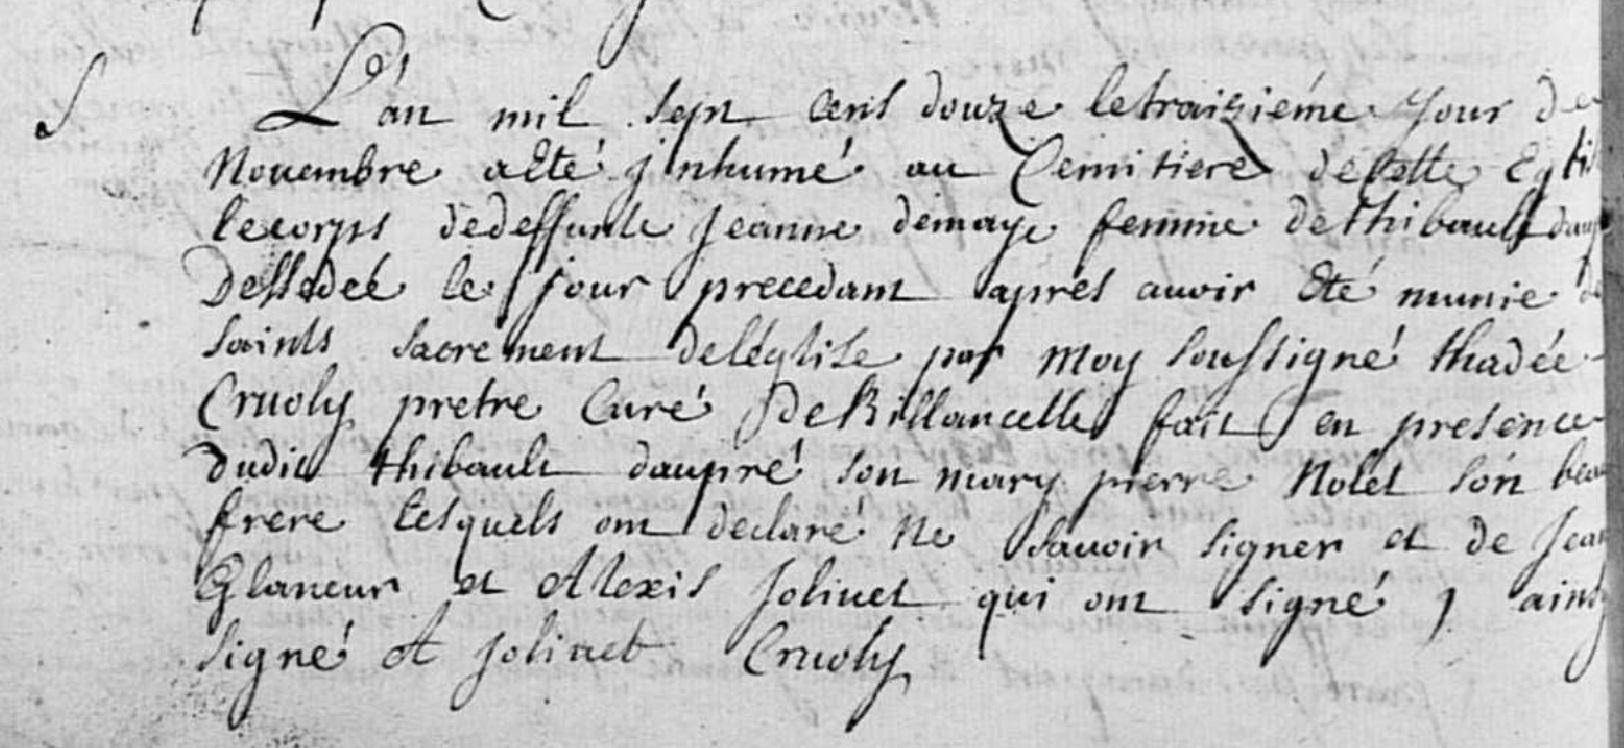 S L'an mil sept cens douze le traisiéme Jour de
Novembre a Eté jnhumé au Cemitiere de Cette Egli
le corps de deffunte Jeanne demaye femme de thibault daup
Dessedeé le jour precedant aprés avoir Eté munie de
saints sacrement de léglise par moy soussigné thadée
Cruoly pretre Curé De Billancelles fait en presence
dudit thibault daupré son mary pierre Nolet son beau
frere lesquels ont declaré ne savoir signer et de Jean
Glaneur et Alexis Jolivet qui ont signé j ainsy
signé A Jolivet Cruoly